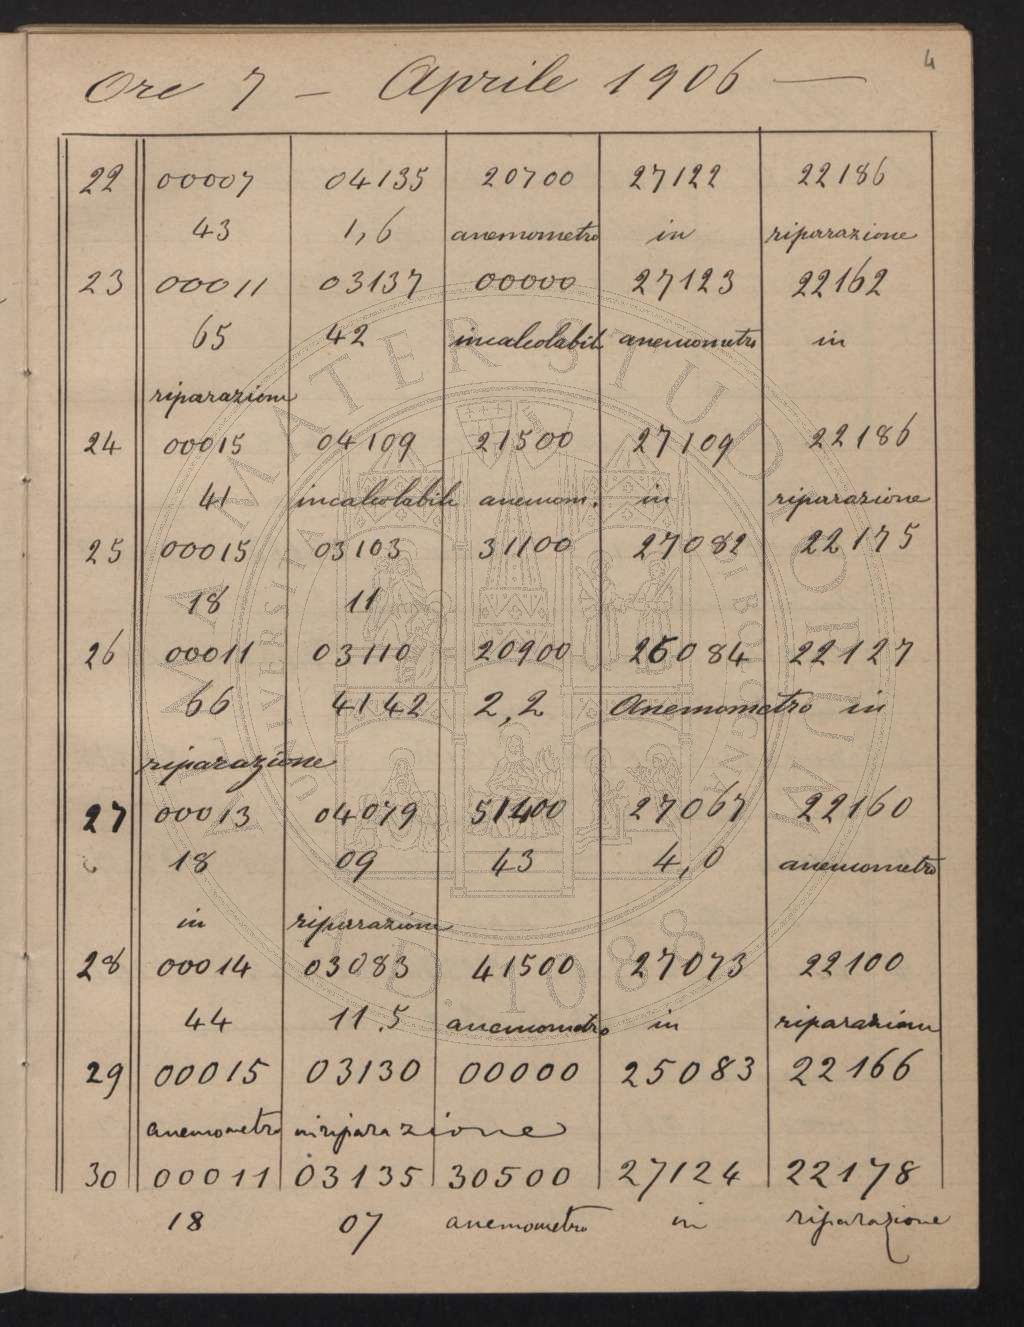 4
Ore 7 — Aprile 1906 —
22 00007 04135 20700 27122 22186
43 1,6 anemometro in riparazione
23 00011 03137 00000 27123 22162
65 42 incalcolabile anemometro in
riparazione
24 00015 04109 21500 27109 22186
41 incalcolabile anemom. in riparazione
25 00015 03103 31100 27082 22175
18 11
26 00011 03110 20900 26084 22127
66 4142 2,2 Anemometro in
riparazione
27 00013 04079 51400 27067 22160
18 09 43 4,0 anemometro
in riparazione
28 00014 03083 41500 27073 22100
44 11.5 anemometro in riparazione
29 00015 03130 00000 25083 22166
anemometro in riparazione
30 00011 03135 30500 27124 22178
18 07 anemometro in riparazione
ALMA MATER STUDIORUM
A.D. 1088